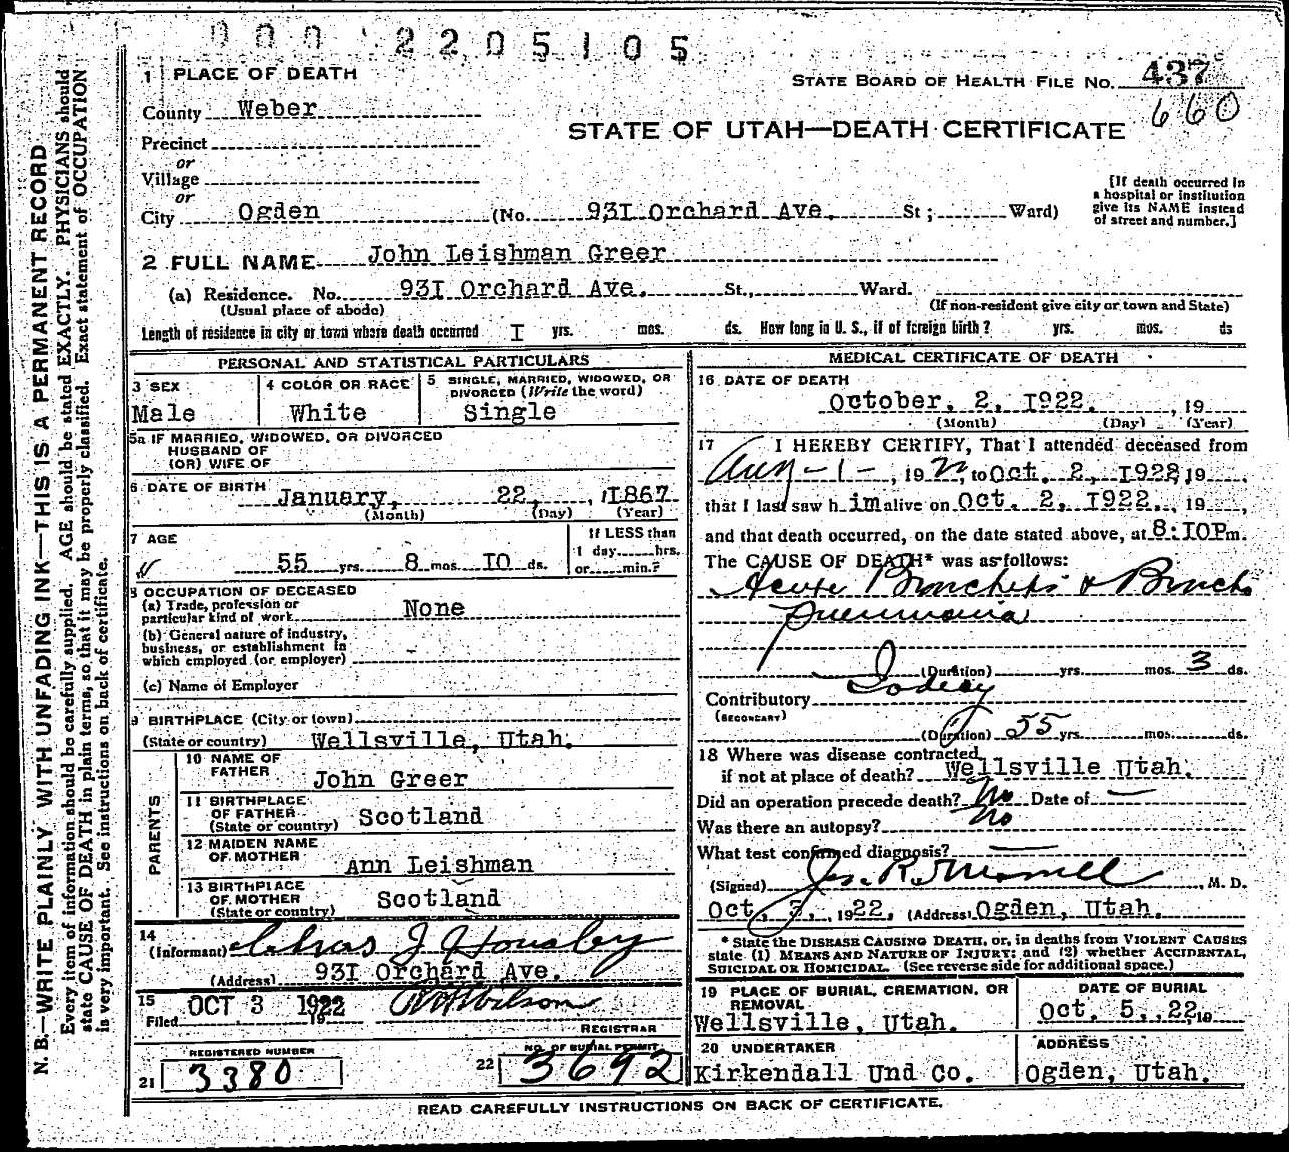 000 2205105
1 PLACE OF DEATH
STATE BOARD OF HEALTH FILE NO. 437
660
County Weber
STATE OF UTAH—DEATH CERTIFICATE
Precinct
or
Village
or
City Ogden (No. 93I Orchard Ave. St; Ward)
[If death occurred in
a hospital or institution
give its NAME instead
of street and number.]
2 FULL NAME John Leishman Greer
(a) Residence. No. 93I Orchard Ave. St., Ward.
(Usual place of abode) (If non-resident give city or town and State)
Length of residence in city or town where death occurred I yrs. mos. ds. How long in U. S., if of foreign birth? yrs. mos. ds
PERSONAL AND STATISTICAL PARTICULARS
3 SEX
Male
4 COLOR OR RACE
White
5 SINGLE, MARRIED, WIDOWED, OR
DIVORCED (Write the word)
Single
5a IF MARRIED, WIDOWED, OR DIVORCED
HUSBAND OF
(OR) WIFE OF
6 DATE OF BIRTH January, 22, 1867
(Month) (Day) (Year)
7 AGE
55 yrs. 8 mos. IO ds.
If LESS than
1 day hrs.
or min.?
8 OCCUPATION OF DECEASED
(a) Trade, profession or
particular kind of work None
(b) General nature of industry,
business, or establishment in
which employed (or employer)
(c) Name of Employer
9 BIRTHPLACE (City or town)
(State or country) Wellsville, Utah.
PARENTS
10 NAME OF
FATHER John Greer
11 BIRTHPLACE
OF FATHER
(State or country) Scotland
12 MAIDEN NAME
OF MOTHER Ann Leishman
13 BIRTHPLACE
OF MOTHER
(State or country) Scotland
14
(Informant) J Housley
(Address) 93I Orchard Ave.
15 OCT 3 1922
Filed 19 Wilson
REGISTRAR
REGISTERED NUMBER
21 3380
NO. OF BURIAL PERMIT
22 3692
MEDICAL CERTIFICATE OF DEATH
16 DATE OF DEATH
October, 2, I922. , 19
(Month) (Day) (Year)
17 I HEREBY CERTIFY, That I attended deceased from
Aug - 1 - , 1922, to Oct. 2, I922, 19
that I last saw h im alive on Oct. 2, I922. , 19 ,
and that death occurred, on the date stated above, at 8:IOPm.
The CAUSE OF DEATH* was as follows:
Acute Bronchitis & Bronch
pneumonia
(Duration) yrs. mos. 3 ds.
Contributory
(SECONDARY)
(Duration) 55 yrs. mos. ds.
18 Where was disease contracted
if not at place of death? Wellsville Utah.
Did an operation precede death? No Date of —
Was there an autopsy? No
What test confirmed diagnosis? —
(Signed) Jos. R. Morrell , M. D.
Oct, 3, , 1922, (Address) Ogden, Utah.
* State the DISEASE CAUSING DEATH, or, in deaths from VIOLENT CAUSES
state (1) MEANS AND NATURE OF INJURY; and (2) whether ACCIDENTAL,
SUICIDAL OR HOMICIDAL. (See reverse side for additional space.)
19 PLACE OF BURIAL, CREMATION, OR
REMOVAL
Wellsville, Utah.
DATE OF BURIAL
Oct. 5, ,22, 19
20 UNDERTAKER
Kirkendall Und Co.
ADDRESS
Ogden, Utah.
READ CAREFULLY INSTRUCTIONS ON BACK OF CERTIFICATE.
N. B.—WRITE PLAINLY WITH UNFADING INK—THIS IS A PERMANENT RECORD
Every item of information should be carefully supplied. AGE should be stated EXACTLY. PHYSICIANS should
state CAUSE OF DEATH in plain terms, so that it may be properly classified. Exact statement of OCCUPATION
is very important. See instructions on back of certificate.